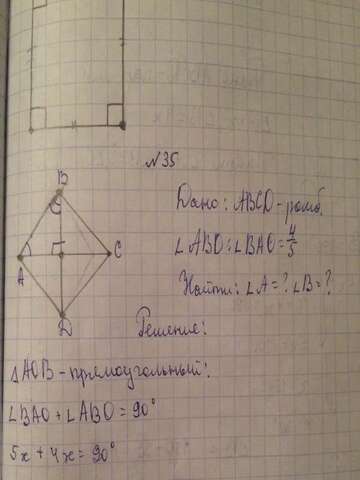 N35
B
A
C
D
Дано: ABCD - ромб.
∠ABO : ∠BAO = 4/5
Найти: ∠A = ? ∠B = ?
Решение:
ΔAOB - прямоугольный:
∠BAO + ∠ABO = 90°
5x + 4x = 90°